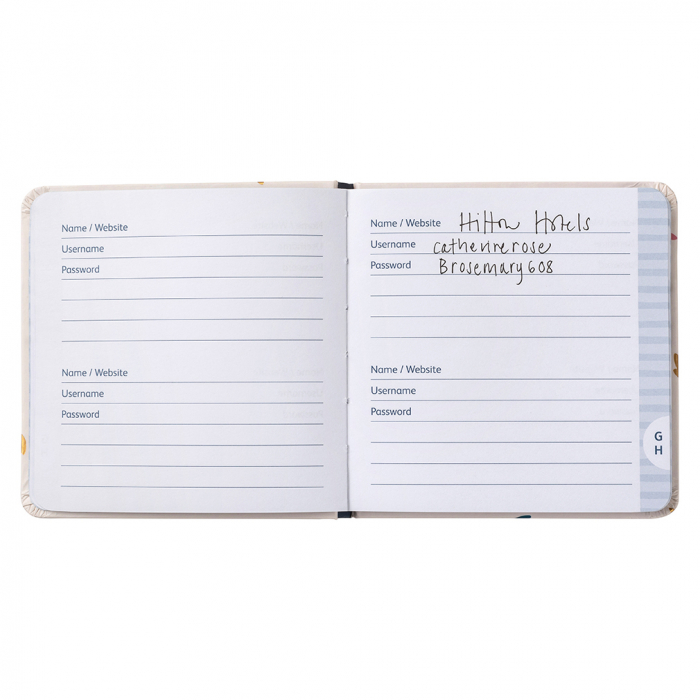 Name / Website
Username
Password
Name / Website
Username
Password
Name / Website Hilton Hotels
Username catherinerose
Password Brosemary608
Name / Website
Username
Password
G
H